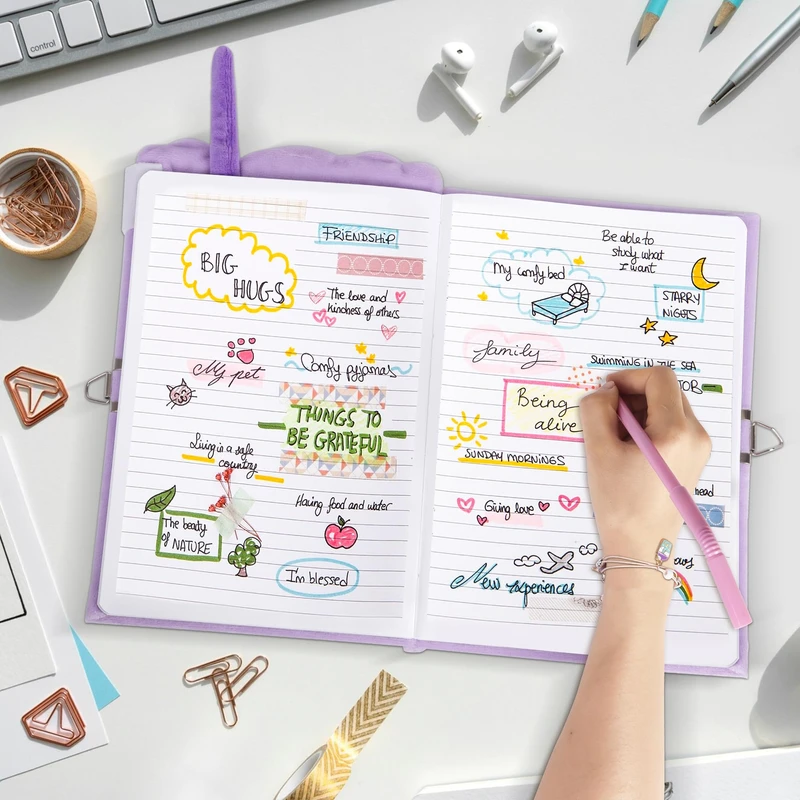 control
BIG
HUGS
FRIENDSHIP
The love and
kindness of others
My pet
Comfy pyjamas
THINGS TO
BE GRATEFUL
Living is a safe
country
Having food and water
The beauty
of NATURE
I'm blessed
My comfy bed
Be able to
study what
I want
STARRY
NIGHTS
family
SWIMMING IN THE SEA
Being
alive
SUNDAY MORNINGS
Giving love
head
New experiences